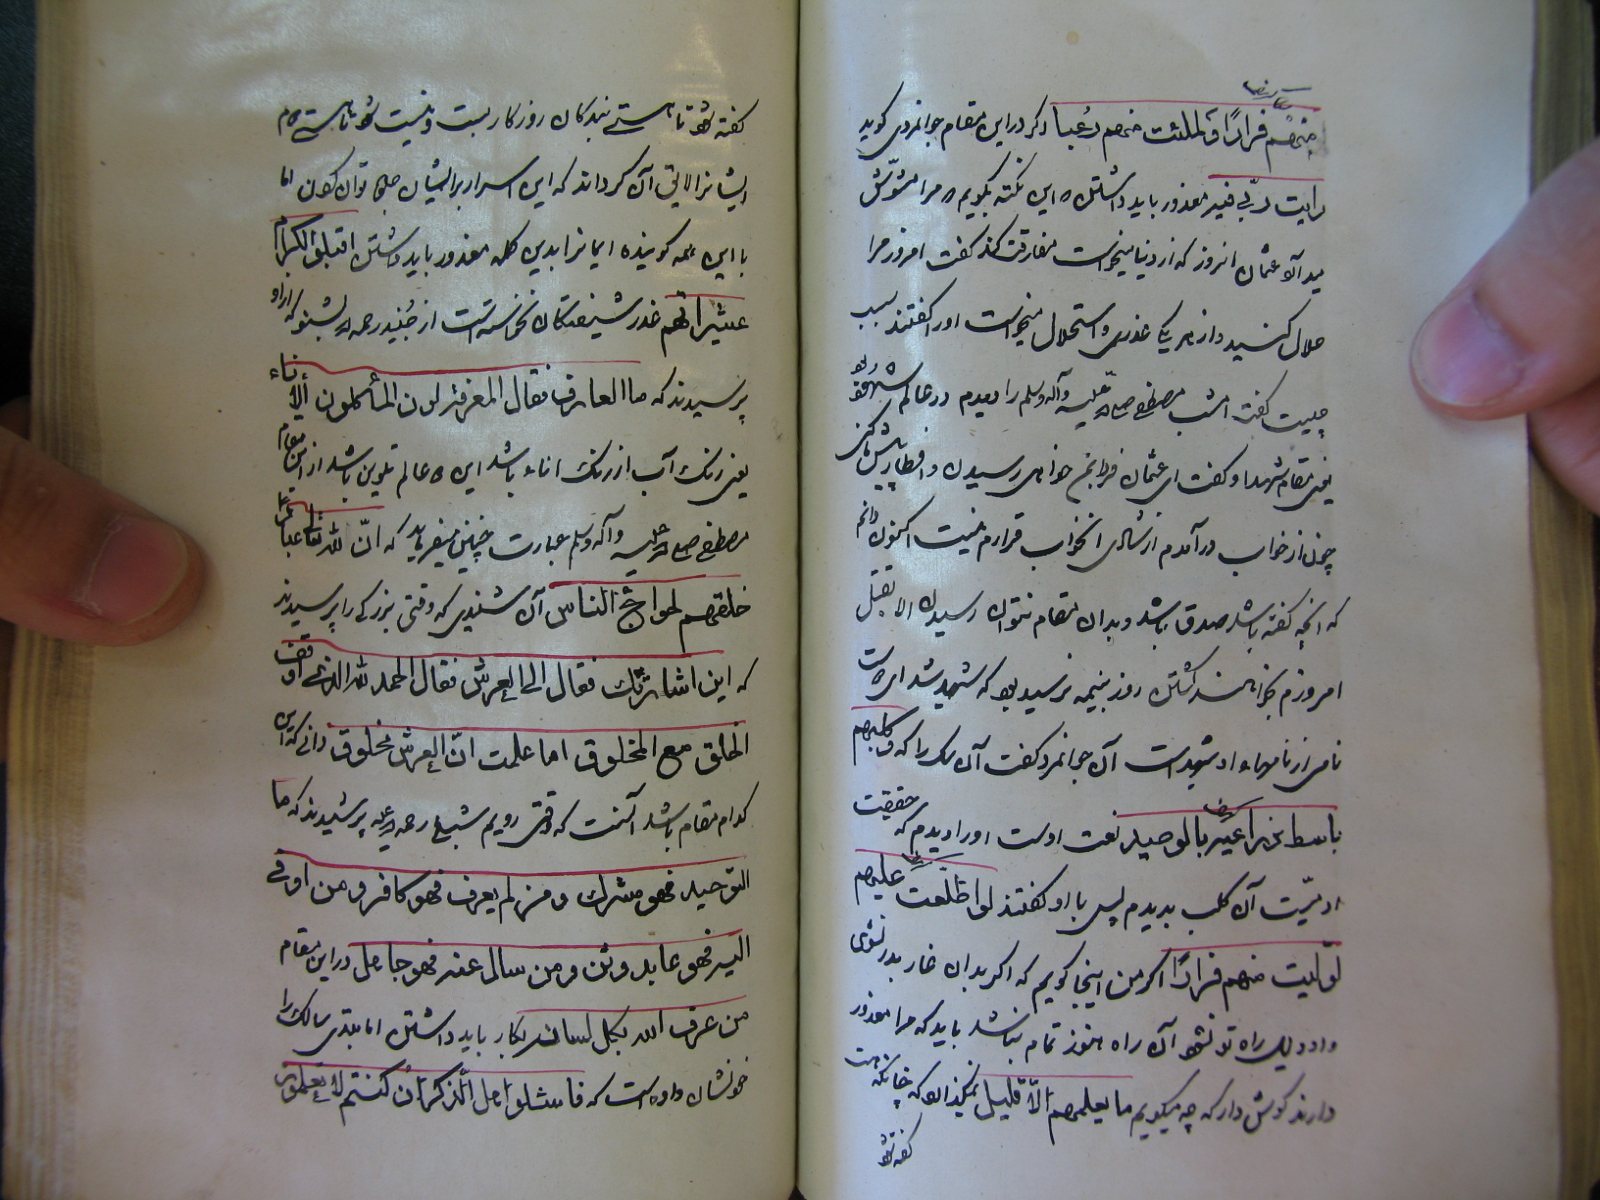 منهم فرارًا و لملئت منهم رعبا دکر در این مقام جوانمردی کوید
رایت ربی فیه معذور باید داشتن که این نکته بکویم که مرا مشوش
میدآرد عثمان انروز که از دنیا میخواست مفارقت کند کفت امروز مرا
حلال کنید و از هر یکی عذری و استحلال میخواست اورا کفتند سبب
چیست کفت امشب مصطفی صلی الله علیه وآله وسلم را دیدم در عالم
یعنی مقام شهدا و کفت ای عثمان فردا بمن خواهی رسیدن و افطار پیش ما کنی
چون از خواب درآمدم از شادی انخواب قرارم نیست اکنون دانم
که انچه کفته باشد صدق باشد و بدان مقام نتوان رسیدن الا بقتل
امروزم بخواهند کشتن روز بنیمه نرسید بود که شهید شد ای دوست
نامی از نامهاء او شهید است آن جوانمرد کفت آن سک را که و کلبهم
باسط ذراعیه بالوصید نعت اوست اورا دیدم که حقیقت
ادمیت آن کلب بدیدم پس با او کفتند لو اطلعت علیهم
لولیت منهم فرارًا اکر من اینجا کویم که اکر بدان غار بدر نشوی
و او دلیل راه تو نشود آن راه هنوز تمام نباشد باید که مرا معذور
دارند کوش دار که چه میکویم ما یعلمهم الا قلیل نمیکذارد که چنانکه هست
کفته شود
کفته شود تا هستی بندکان روزکار بست و نیست شود تا هستی هم
ایشانرا لایق آن کرداند که این اسرار بر ایشان جلوه توان کردن اما
با این همه کوینده ایمانرا بدین کلمه معذور باید داشتن اقیلوا الکرام
عثراتهم عذر شیفتکان نخواسته است از جنید رحمه الله بشنو که اورا
پرسیدند که ما العارف فقال المعرفة لون الماء لون الاناء
یعنی رنک آب از رنک اناء باشد این در عالم تلوین باشد از این مقام
مصطفی صلی الله علیه وآله وسلم عبارت چنین میفرماید که انّ لله تعالی عبادا
خلقهم لحوائج الناس آن شنیدی که وقتی بزرکی را پرسیدند
که این اشار ربّک فقال الی العرش فقال الحمد لله الذی اوقف
الخلق مع المخلوق اما علمت انّ العرش مخلوق دانی که این
کدام مقام باشد آنست که وقتی رویم شبلی رحمه الله علیه پرسیدند که ما
التوحید فهو مشرک و من لم یعرف فهو کافر و من اومی
الیه فهو عابد وثن و من سال عنه فهو جاهل در این مقام
من عرف الله بکل لسانه بکار باید داشتن اما مبتدی سالک را
خود نشان داده است که فاسئلوا اهل الذکر ان کنتم لا تعلمون